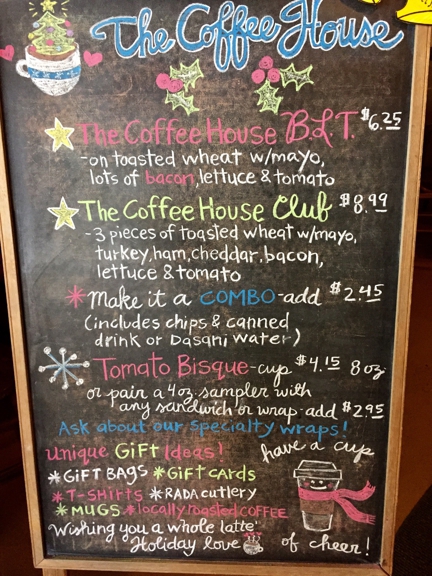 The Coffee House
The Coffee House B.L.T. $6.25
-on toasted wheat w/mayo,
lots of bacon, lettuce & tomato
The Coffee House Club $8.99
-3 pieces of toasted wheat w/mayo,
turkey, ham, cheddar, bacon,
lettuce & tomato
*Make it a COMBO-add $2.45
(includes chips & canned
drink or Dasani water)
Tomato Bisque-cup $4.15 8 oz.
or pair a 4oz. sampler with
any sandwich or wrap-add $2.95
Ask about our specialty wraps!
Unique Gift Ideas!
*GIFT BAGS *GIFT CARDS
*T-SHIRTS *RADA cutlery
*MUGS *locally roasted COFFEE
Wishing you a whole latte'
Holiday love
have a cup
of cheer!